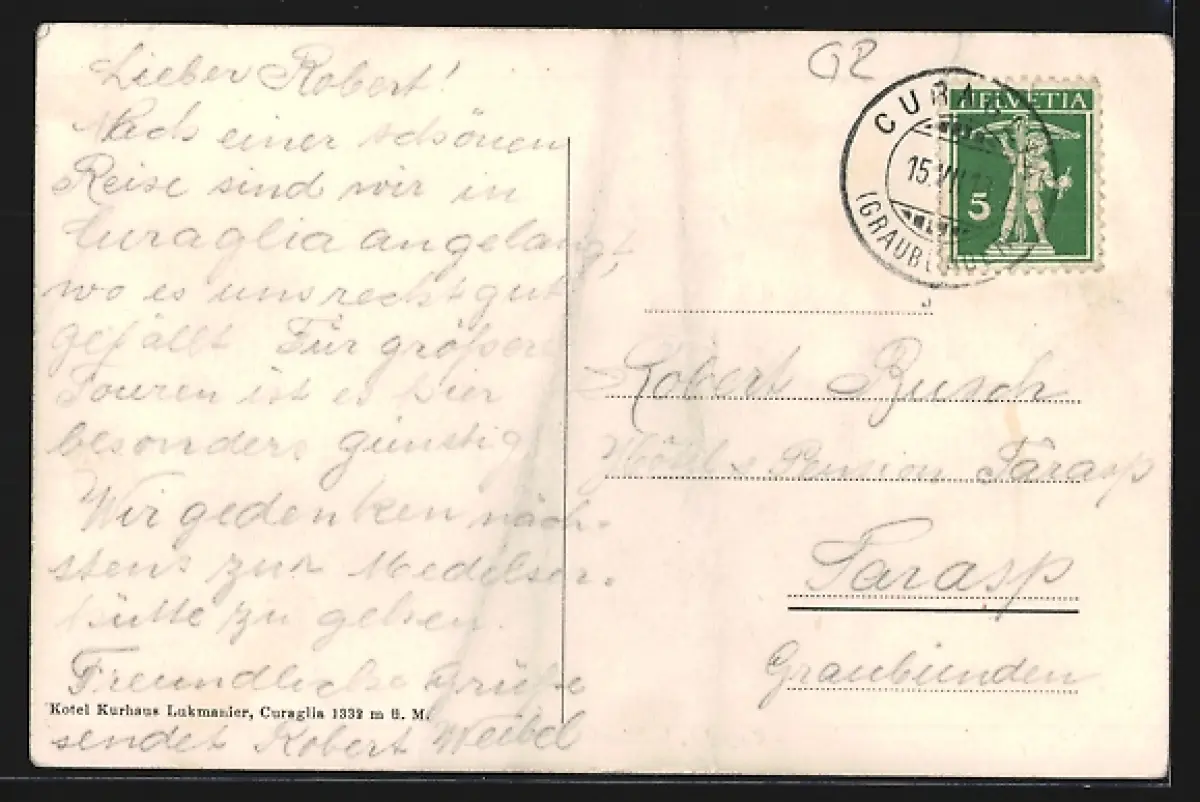 Lieber Robert!
Nach einer schönen
Reise sind wir in
Curaglia angelangt,
wo es uns recht gut
gefällt. Für größere
Touren ist es hier
besonders günstig.
Wir gedenken näch-
stens zur Medelser-
hütte zu gehen.
Freundliche Grüße
sendet Robert Weibel
Hotel Kurhaus Lukmanier, Curaglia 1332 m ü. M.
G2
CURAG
15.VII
(GRAUBÜNDEN)
HELVETIA
5
Robert Busch
Hôtel & Pension Tarasp
Tarasp
Graubünden